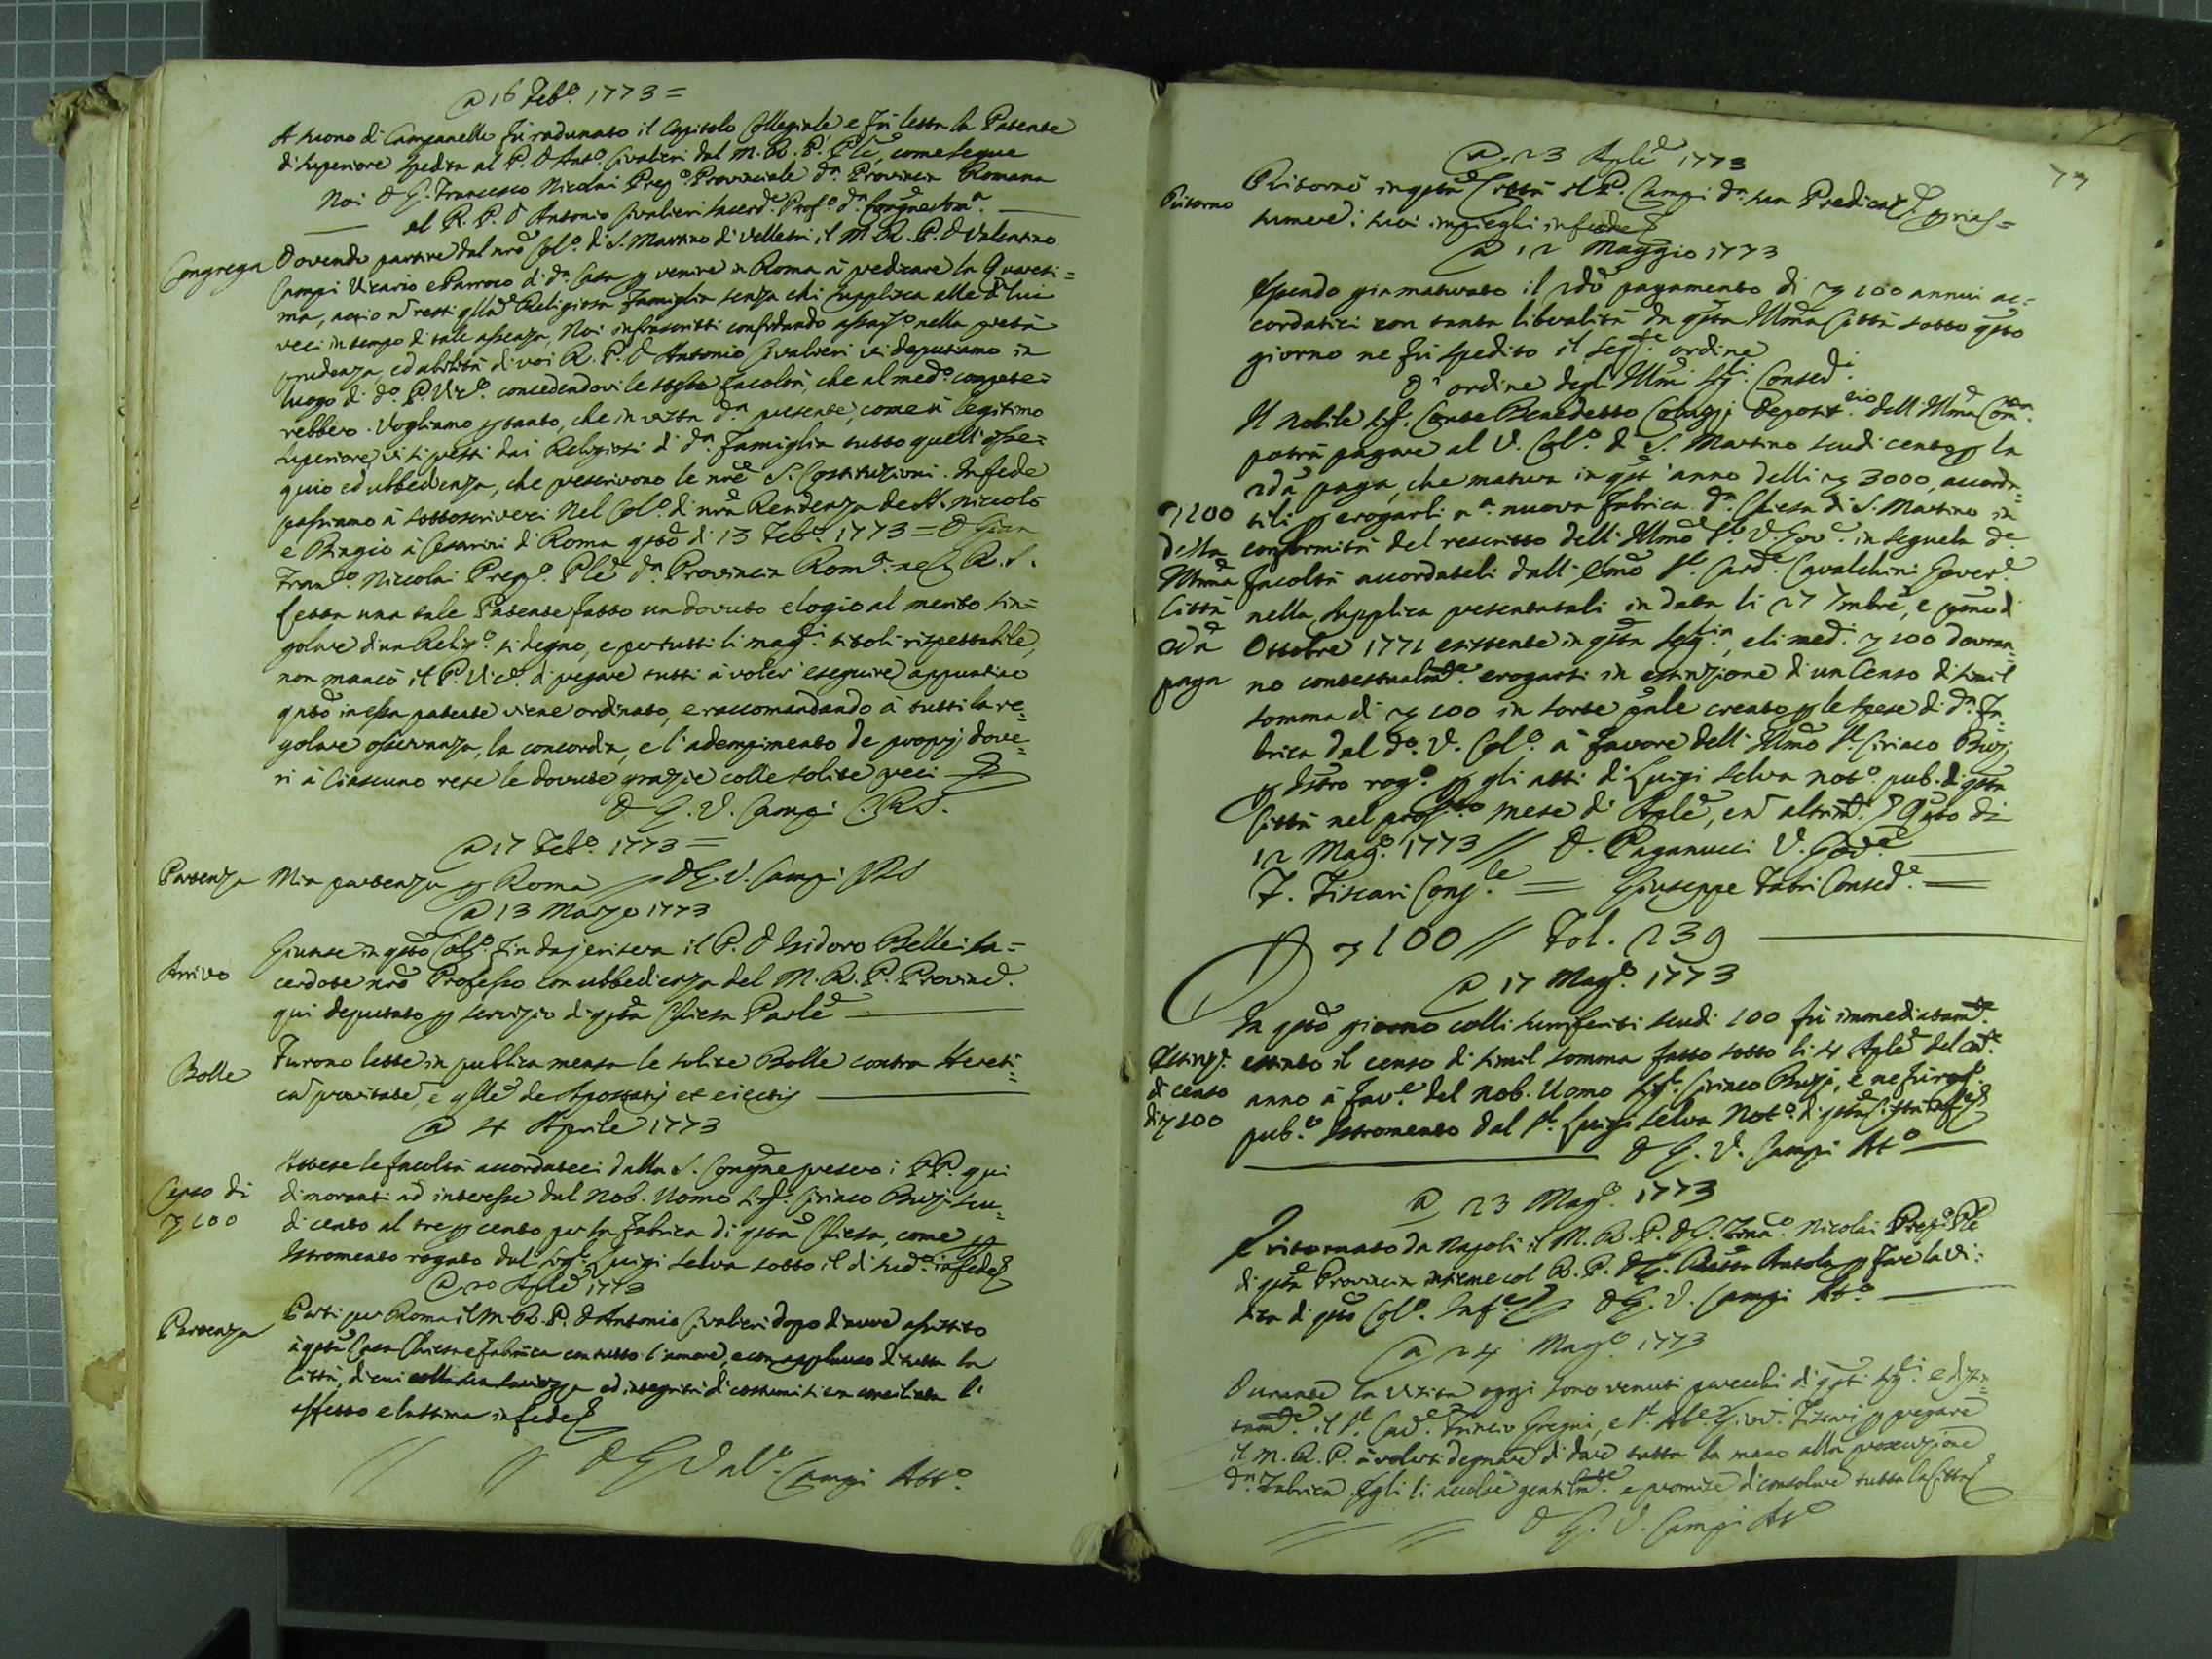 @ 16 Feb.º 1773 =
A suono di Campanello fu radunato il Capitolo Collegiale e fu letta la Patente
di Superiore spedita al P. D Ant.º Civalieri dal M. R. P. Ple, come segue
Noi D G. Francesco Nicolai Prep.º Provinciale d.ª Provincia Romana
al R. P. D Antonio Civalieri Sacerd.e Prof.º d.ª Congne Som.ª
Congrega Dovendo partire dal nro Col.º di S. Martino di Velletri, il M. R. P. D Valentino
Campi Vicario e Parroco di d.ª Casa p venire in Roma à predicare la Quaresi=
ma, acciò n resti qlla Religiosa Famiglia senza chi supplisca alle di lui
veci in tempo di tale assenza, Noi infrascritti confidando assaiss.º nella pietà
prudenza, ed abilità di voi R. P. D Antonio Civalieri vi deputiamo in
luogo di d.º P. Vic.º concedendovi le stesse facoltà, che al med.º compete=
rebbero. Vogliamo p tanto, che in vista d.ª presente, come à legitimo
Superiore, vi si presti dai Religiosi di d.ª Famiglia tutto quell'osse=
quio ed ubbedienza, che prescrivono le nre S. Costituzioni. In fede
passiamo à sottoscriverci Nel Col.º di nra Residenza de SS. Niccolò
e Biagio à Cesarini di Roma qsto di 13 Feb.º 1773 = D Gian
Fran.co Niccolai Prep.º Ple d.ª Provincia Rom.ª de C. R. S.
Letta una tale Patente fatto un dovuto elogio al merito sin=
golare d'un Relig.º si degno, e per tutti li magg.i titoli rispettabile,
non mancò il P. Vic.º di pregare tutti à voler eseguire appuntino
qnto in essa patente viene ordinato, e raccomandando à tutti la re=
golare osservanza, la concordia, e l'adempimento de proprj dove=
ri à ciascuno rese le dovute grazie colle solite preci
D G. V. Campi C. R. S.
@ 17 Feb.º 1773 =
Partenza Mia partenza p Roma D G. V. Campi CRS
@ 13 Marzo 1773
Arrivo Giunse in qsto Col.º fin da jerisera il P. D Isidoro Bellei Sa=
cerdote nro Professo con ubbedienza del M. R. P. Provinc.
qui deputato p servizio di qsta Chiesa Parle
Bolle Furono lette in publica mensa le solite Bolle contra Hereti=
cã pravitatẽ, e qlle de Apostatis et eiectis
@ 4 Aprile 1773
Attese le facoltà accordateci dalla S. Congne presero i PP. qui
Censo di dimoranti ad interesse dal Nob. Uomo Sig. Ciriaco Buzj scu=
100 di cento al tre p cento per la Fabrica di qsta Chiesa, come p
Istromento rogato dal Sig. Luigi Selva sotto il di sud.º in fede
@ 20 Aple 1773
Partenza Partì per Roma il M. R. P. D Antonio Civalieri dopo d'aver assistito
à qsta Casa Chiesa e fabrica con tutto l'amore, e con applauso di tutta la
Città, di cui colla sua saviezza ed integrità di costumi si era conciliata l'
affetto e la stima in fede
D G Val.º Campi Att.º
77
@ 23 Aple 1773
Ritorno Ritornò in qsta Città il P. Campi d.ª sua Predicaz.e p rias=
sumere i suoi impieghi in fede
@ 12 Maggio 1773
Essendo gia maturato il 2do pagamento di 100 annui ac=
cordatici con tanta liberalità da qsta Illma Città sotto qsto
giorno ne fu spedito il seg.te ordine
D' ordine degli Illmi Sig.ri Consed.i
Il Nobile Sig. Conte Benedetto Colagj Deposit.rio dell'Illma Com.
potrà pagare al V. Col.º di S. Martino scudi cento p la
2da paga, che matura in qst' anno delli 3000, accorda=
100 tili p erogarli a.ª nuova Fabrica d.ª Chiesa di S. Martino in
della conformità del rescritto dell'Illmo Sr. V. Gov.e in seguela d.e
Illma facoltà accordateli dall'Emo Sr. Card. Cavalchini Gover.e
Città nella supplica presentatali in data li 27 7mbre, e pmo di
2da Ottobre 1771 esistente in qsta Seg.ria, e li med.i 100 dovran=
paga no contestualmte erogarsi in estinzione di un Censo di simil
somma di 100 in sorte ple creato p le spese di d.ª Fa=
brica dal d.º V. Col.º à favore dell'Illmo Sr. Ciriaco Buzj
p Istro rog.º p gli atti di Luigi Selva not.º pub. di qsta
Città nel pross.mo mese di Aple, e n altrimte. Qsto di
12 Mag.º 1773 // D. Paganucci V. Gov.e
F. Fiscari Cons.le = Giuseppe Fabri Consed.e
100 // Fol. 239
@ 17 Mag.º 1773
In qsto giorno colli surriferiti scudi 100 fu immediatamte
Estinz.e estinto il censo di simil somma fatto sotto li 4 Aple del cor.te
di censo anno à fav.e del nob. Uomo Sig. Ciriaco Buzj, e ne fu rog.
di 100 pub.º Istromento dal Sr. Luigi Selva Not.º di qsta Città in fede
D G. V. Campi Att.º
@ 23 Mag.º 1773
È ritornato da Napoli il M. R. P. D G. Fran.co Nicolai Prep.º Ple
di qsta Provincia insieme col R. P. D G. Batta Antola p fare la Vi=
sita di qsto Col.º. In fe D G. V. Campi Att.º
@ 24 Mag.º 1773
Durante la Visita oggi sono venuti parecchi di qsti Sig.i e disti=
tamte. il Sr. Cav.e Fincio Gregni, e Sr. Ab.e Giov. Fiscari p pregare
il M. R. P. à volersi degnare di dare tutta la mano alla prosecuzione
d.ª Fabrica. Egli li accolse gentilmte e promise di consolare tutta la Città
D G. V. Campi Att.º